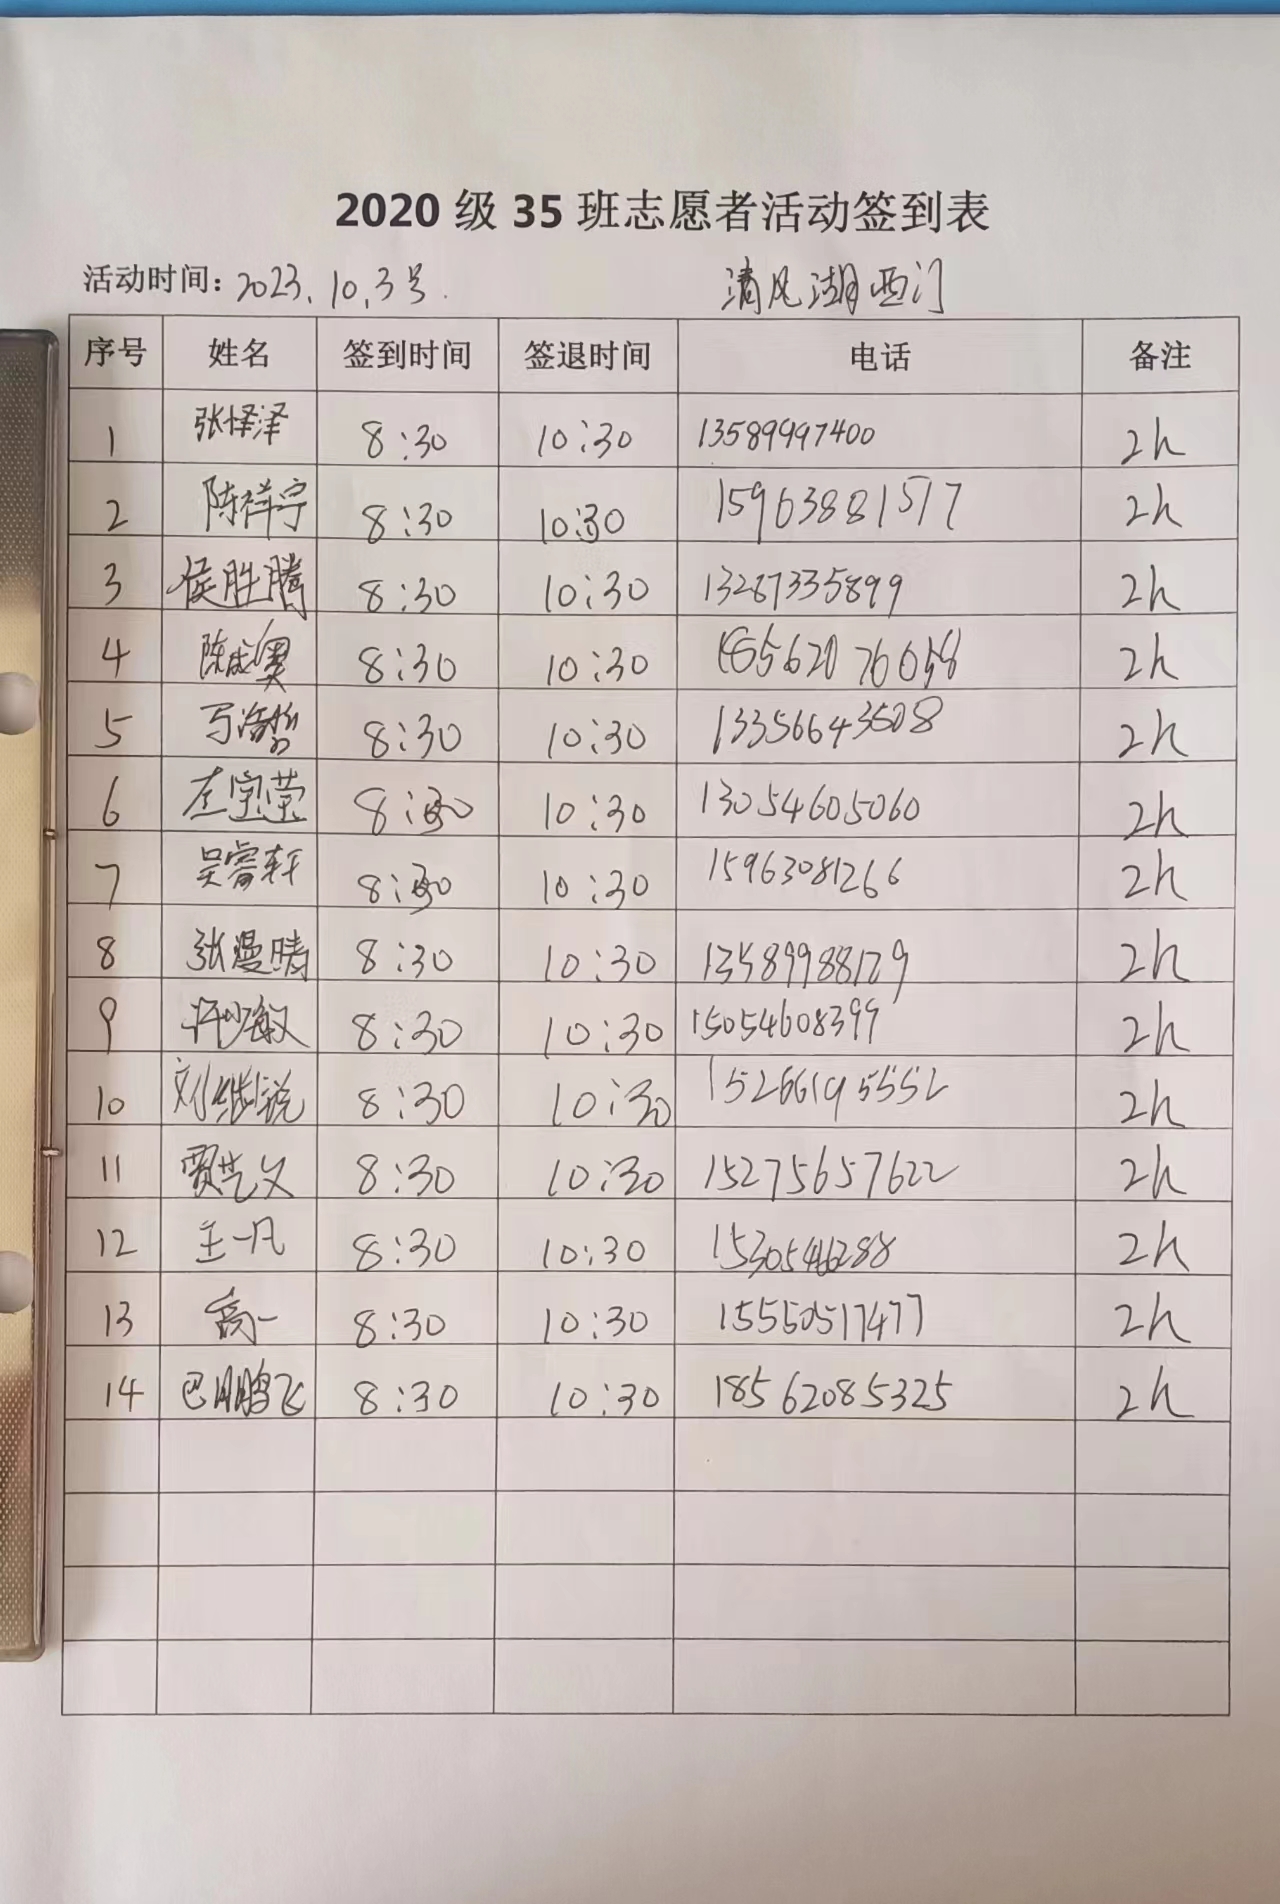 2020 级 35 班志愿者活动签到表
活动时间：2023.10.3号. 清风湖西门
序号 姓名 签到时间 签退时间 电话 备注
1 张怿泽 8:30 10:30 13589997400 2h
2 陈祥宇 8:30 10:30 15963881517 2h
3 侯胜腾 8:30 10:30 13287335899 2h
4 陈成奥 8:30 10:30 2h
5 8:30 10:30 13356643508 2h
6 左宝莹 8:30 10:30 13054605060 2h
7 吴睿轩 8:30 10:30 15963081266 2h
8 张漫晴 8:30 10:30 13589988129 2h
9 8:30 10:30 15054608399 2h
10 刘继锐 8:30 10:30 15266195552 2h
11 贾艺义 8:30 10:30 15275657622 2h
12 王一凡 8:30 10:30 2h
13 高一 8:30 10:30 15550517477 2h
14 巴鹏飞 8:30 10:30 18562085325 2h